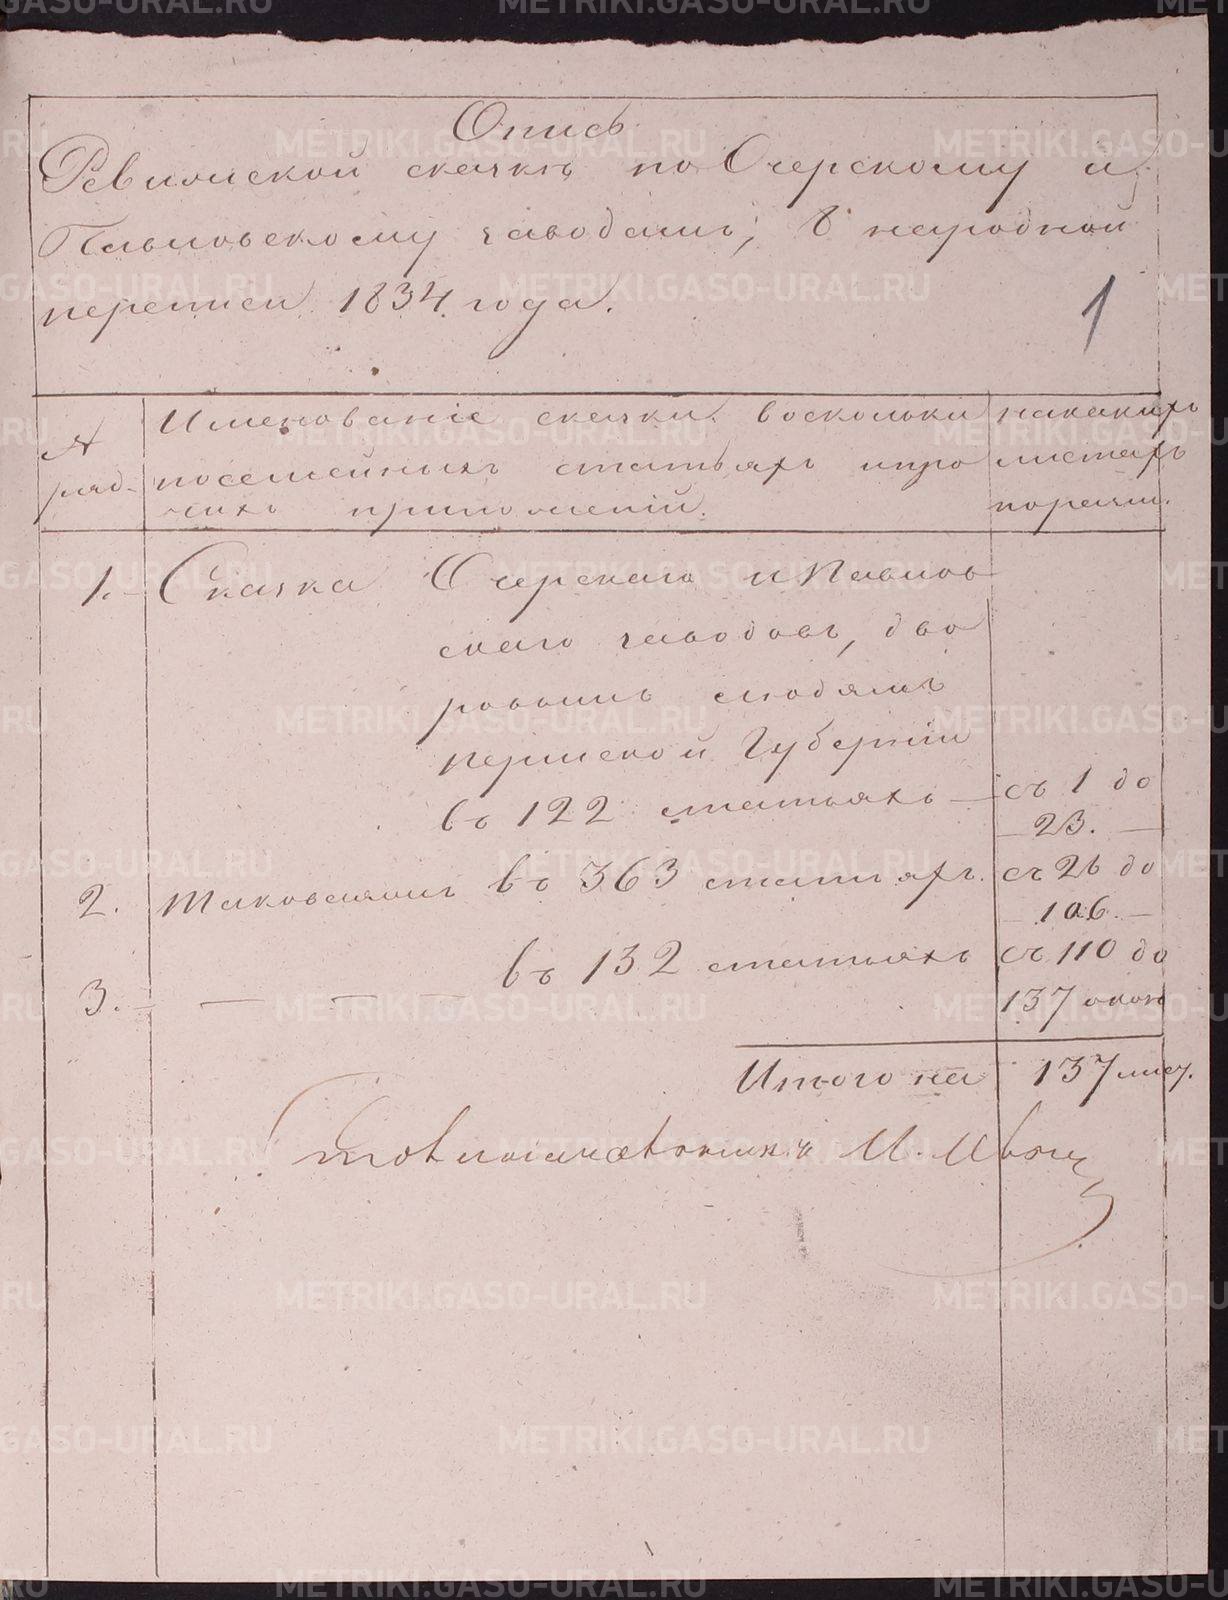 Опись
Ревизской сказкѣ по Очерскому и
Павловскому заводамъ, 8 народной
переписи 1834 года.
1
№ ряд.
Именованіе сказки, восколькихъ
посемейныхъ статьяхъ ипро
чихъ приложеній.
накакихъ
листахъ
порядк.
1. Сказка Очерскаго и Павлов
скаго заводовъ, дво
ровымъ людямъ
пермской Губерніи
въ 122 статьяхъ — съ 1 до
23.
2. Таковаяжъ въ 363 статьяхъ. съ 26 до
106.
3. — — — въ 132 статьяхъ съ 110 до
137
Итого на 137 лист.